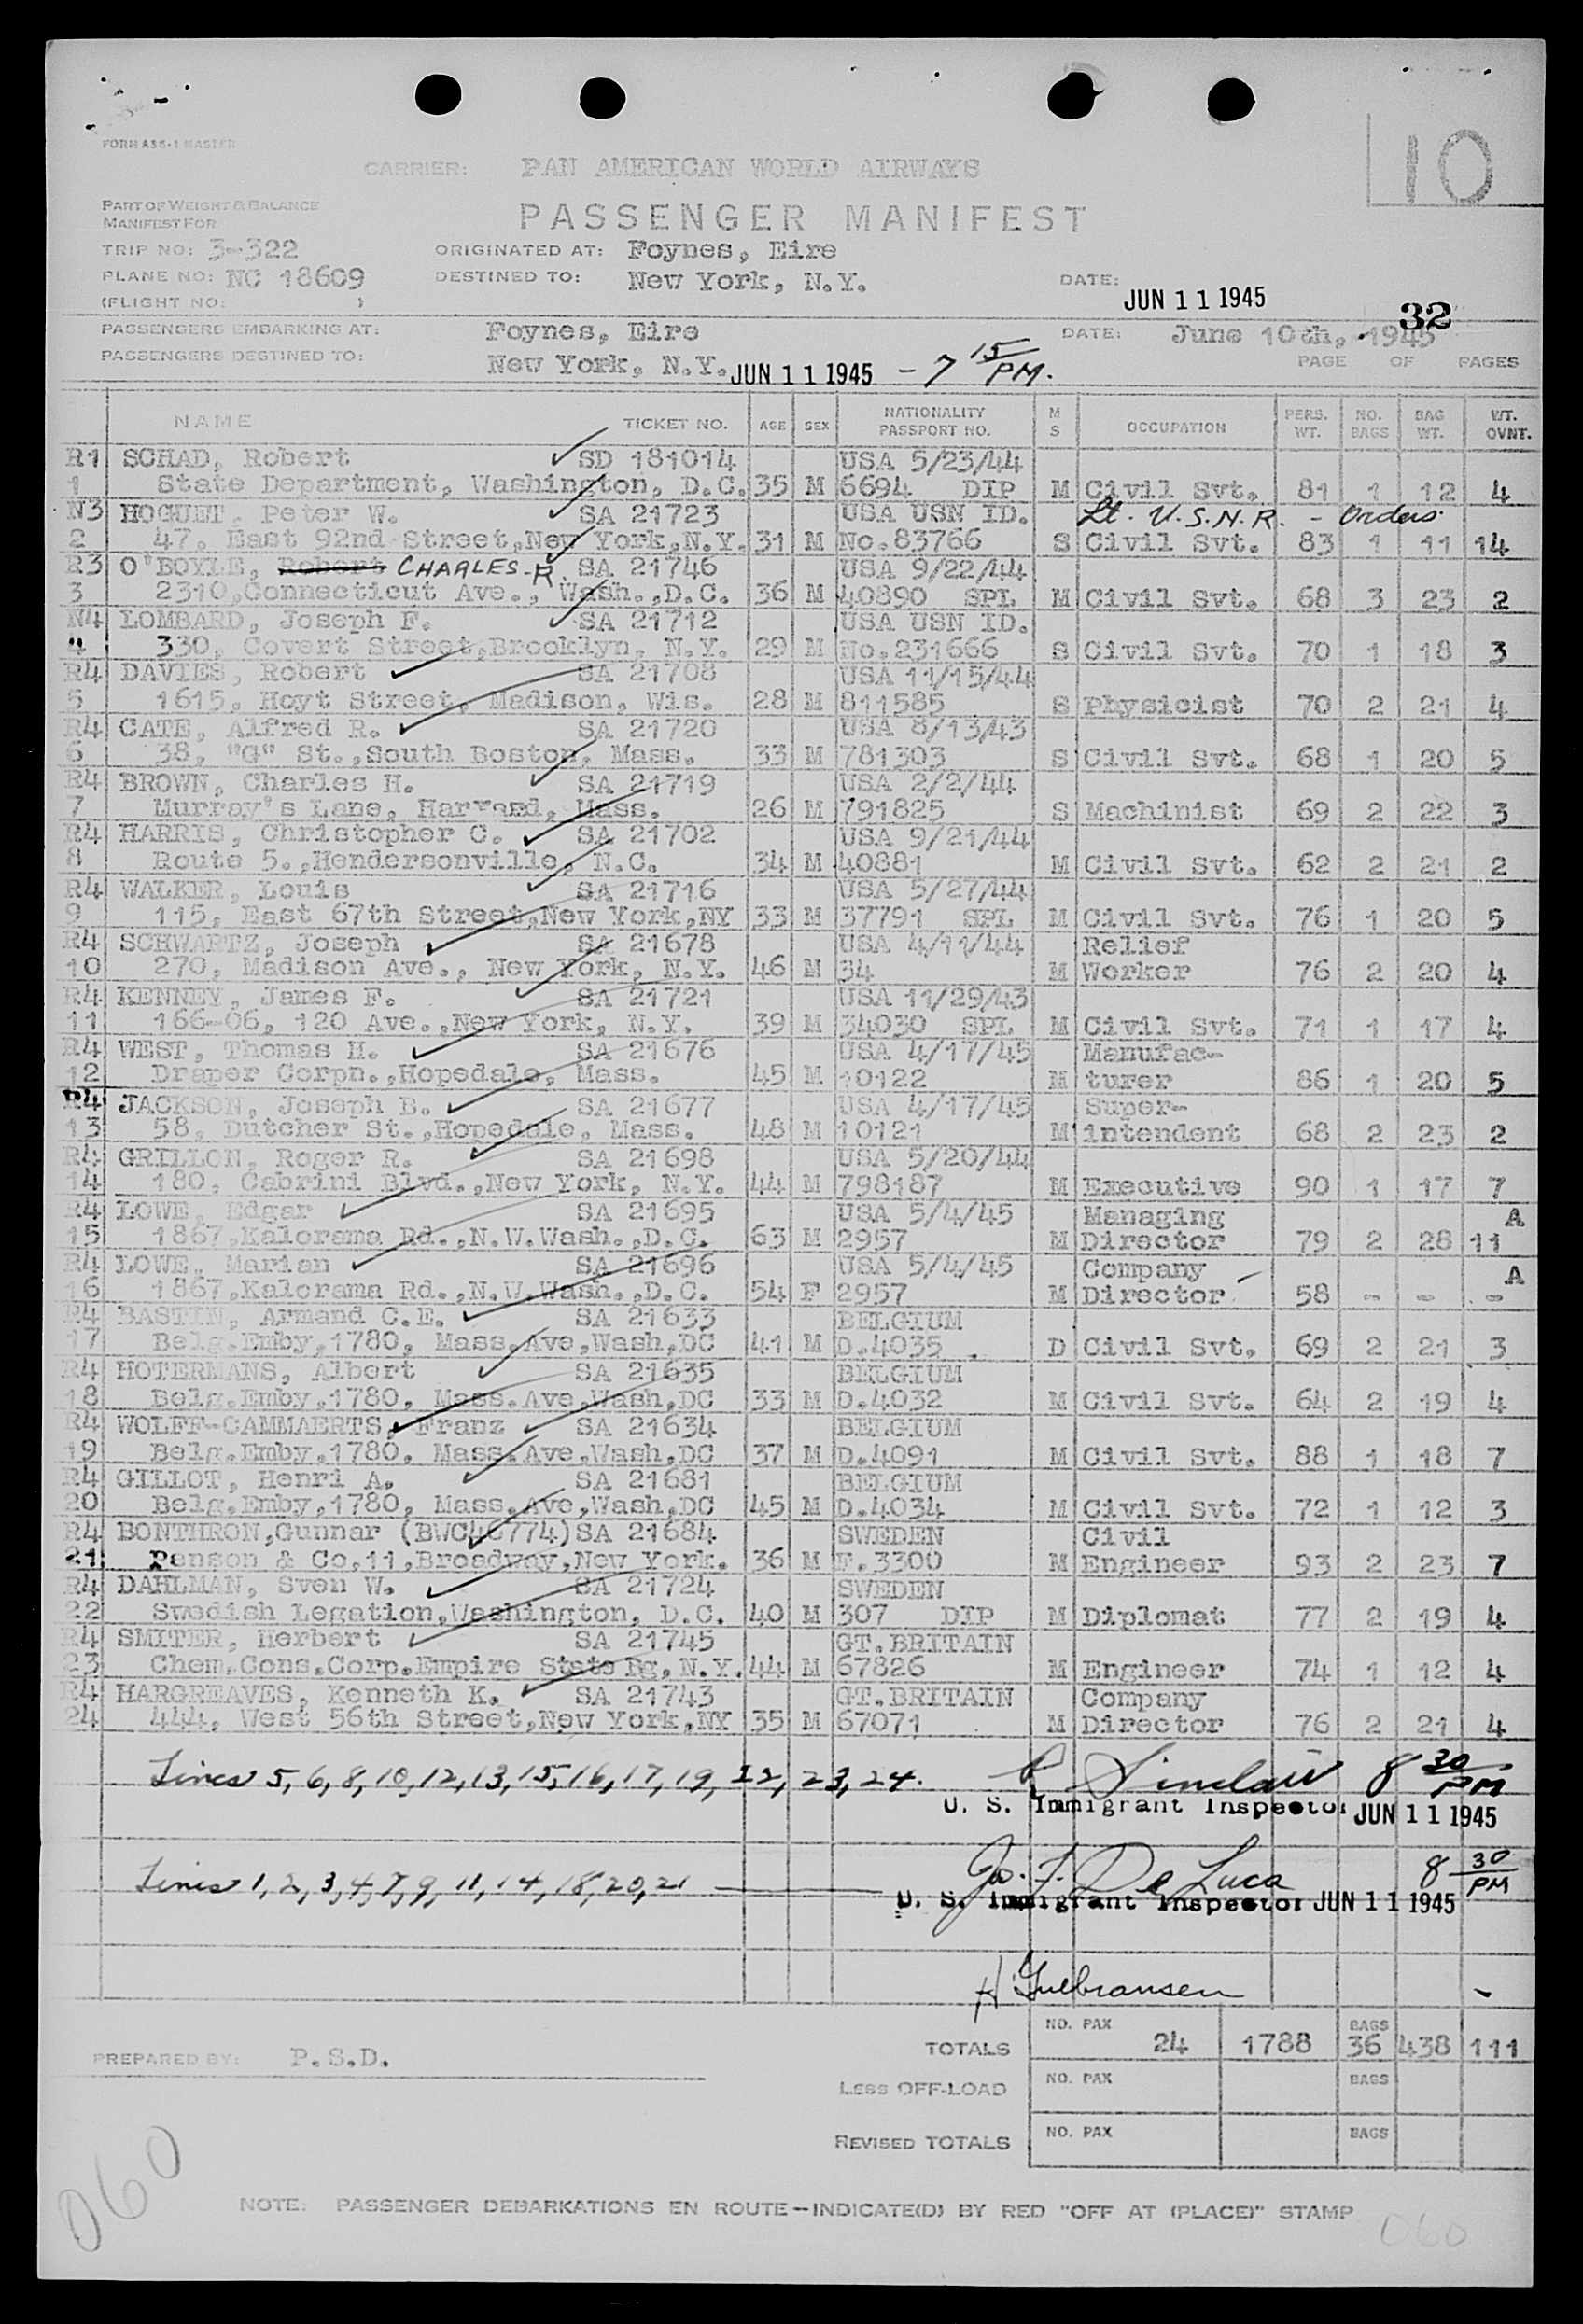 FORM A36-1 MASTER
10
CARRIER: PAN AMERICAN WORLD AIRWAYS
PART OF WEIGHT & BALANCE
MANIFEST FOR
PASSENGER MANIFEST
TRIP NO: 3-322 ORIGINATED AT: Foynes, Eire
PLANE NO: NC 18609 DESTINED TO: New York, N.Y. DATE: JUN 11 1945
(FLIGHT NO: )
32
PASSENGERS EMBARKING AT: Foynes, Eire DATE: June 10th, 1945
PASSENGERS DESTINED TO: New York, N.Y. JUN 11 1945 - 7 15 PM. PAGE OF PAGES
NAME TICKET NO. AGE SEX NATIONALITY PASSPORT NO. M S OCCUPATION PERS. WT. NO. BAGS BAG WT. WT. OVNT.
R1 SCHAD, Robert SD 181014 USA 5/23/44
1 State Department, Washington, D.C. 35 M 6694 DIP M Civil Svt. 81 1 12 4
N3 HOGUET, Peter W. SA 21723 USA USN ID. Lt. U.S.N.R. - Orders
2 47, East 92nd Street,New York,N.Y. 31 M No.83766 S Civil Svt. 83 1 11 14
R3 O'BOYLE, Robert CHARLES R. SA 21746 USA 9/22/44
3 2310,Connecticut Ave., Wash.,D.C. 36 M 40890 SPL M Civil Svt. 68 3 23 2
N4 LOMBARD, Joseph F. SA 21712 USA USN ID.
4 330, Covert Street,Brooklyn, N.Y. 29 M No.231666 S Civil Svt. 70 1 18 3
R4 DAVIES, Robert SA 21708 USA 11/15/44
5 1615, Hoyt Street, Madison, Wis. 28 M 811585 S Physicist 70 2 21 4
R4 CATE, Alfred R. SA 21720 USA 8/13/43
6 38, "G" St.,South Boston, Mass. 33 M 781303 S Civil Svt. 68 1 20 5
R4 BROWN, Charles H. SA 21719 USA 2/2/44
7 Murray's Lane, Harvard, Mass. 26 M 791825 S Machinist 69 2 22 3
R4 HARRIS, Christopher C. SA 21702 USA 9/21/44
8 Route 5.,Hendersonville, N.C. 34 M 40881 M Civil Svt. 62 2 21 2
R4 WALKER, Louis SA 21716 USA 5/27/44
9 115, East 67th Street,New York,NY 33 M 37791 SPL M Civil Svt. 76 1 20 5
R4 SCHWARTZ, Joseph SA 21678 USA 4/11/44 Relief
10 270, Madison Ave., New York, N.Y. 46 M 34 M Worker 76 2 20 4
R4 KENNEY, James F. SA 21721 USA 11/29/43
11 166-06, 120 Ave.,New York, N.Y. 39 M 34030 SPL M Civil Svt. 71 1 17 4
R4 WEST, Thomas H. SA 21676 USA 4/17/45 Manufac-
12 Draper Corpn.,Hopedale, Mass. 45 M 10122 M turer 86 1 20 5
R4 JACKSON, Joseph B. SA 21677 USA 4/17/45 Super-
13 58, Dutcher St.,Hopedale, Mass. 48 M 10121 M intendent 68 2 23 2
R4 GRILLON, Roger R. SA 21698 USA 5/20/44
14 180, Cabrini Blvd.,New York, N.Y. 44 M 798187 M Executive 90 1 17 7
R4 LOWE, Edgar SA 21695 USA 5/4/45 Managing A
15 1867,Kalorama Rd.,N.W.Wash.,D.C. 63 M 2957 M Director 79 2 28 11
R4 LOWE, Marian SA 21696 USA 5/4/45 Company A
16 1867,Kalorama Rd.,N.W.Wash.,D.C. 54 F 2957 M Director 58 - - -
R4 BASTIN, Armand C.E. SA 21633 BELGIUM
17 Belg.Emby,1780, Mass.Ave,Wash,DC 41 M D.4035 D Civil Svt. 69 2 21 3
R4 HOTERMANS, Albert SA 21635 BELGIUM
18 Belg.Emby,1780, Mass.Ave,Wash,DC 33 M D.4032 M Civil Svt. 64 2 19 4
R4 WOLFF-CAMMAERTS, Franz SA 21634 BELGIUM
19 Belg.Emby,1780, Mass.Ave,Wash,DC 37 M D.4091 M Civil Svt. 88 1 18 7
R4 GILLOT, Henri A. SA 21681 BELGIUM
20 Belg.Emby,1780, Mass.Ave,Wash,DC 45 M D.4034 M Civil Svt. 72 1 12 3
R4 BONTHRON,Gunnar (BWC46774) SA 21684 SWEDEN Civil
21 Renson & Co,11,Broadway,New York. 36 M F.3300 M Engineer 93 2 23 7
R4 DAHLMAN, Sven W. SA 21724 SWEDEN
22 Swedish Legation,Washington, D.C. 40 M 307 DIP M Diplomat 77 2 19 4
R4 SMITER, Herbert SA 21745 GT.BRITAIN
23 Chem.Cons.Corp.Empire State Bg, N.Y. 44 M 67826 M Engineer 74 1 12 4
R4 HARGREAVES, Kenneth K. SA 21743 GT.BRITAIN Company
24 444, West 56th Street,New York,NY 35 M 67071 M Director 76 2 21 4
Lines 5, 6, 8, 10, 12, 13, 15, 16, 17, 19, 22, 23, 24. Sinclair 8 30 PM
U. S. Immigrant Inspector JUN 11 1945
Lines 1, 2, 3, 4, 7, 9, 11, 14, 18, 20, 21 Jo. F. De Luca 8 30 PM
U. S. Immigrant Inspector JUN 11 1945
H Gulbransen
TOTALS NO. PAX 24 1788 BAGS 36 438 111
PREPARED BY: P.S.D.
LESS OFF-LOAD NO. PAX BAGS
REVISED TOTALS NO. PAX BAGS
060
NOTE: PASSENGER DEBARKATIONS EN ROUTE—INDICATE(D) BY RED "OFF AT (PLACE)" STAMP
060